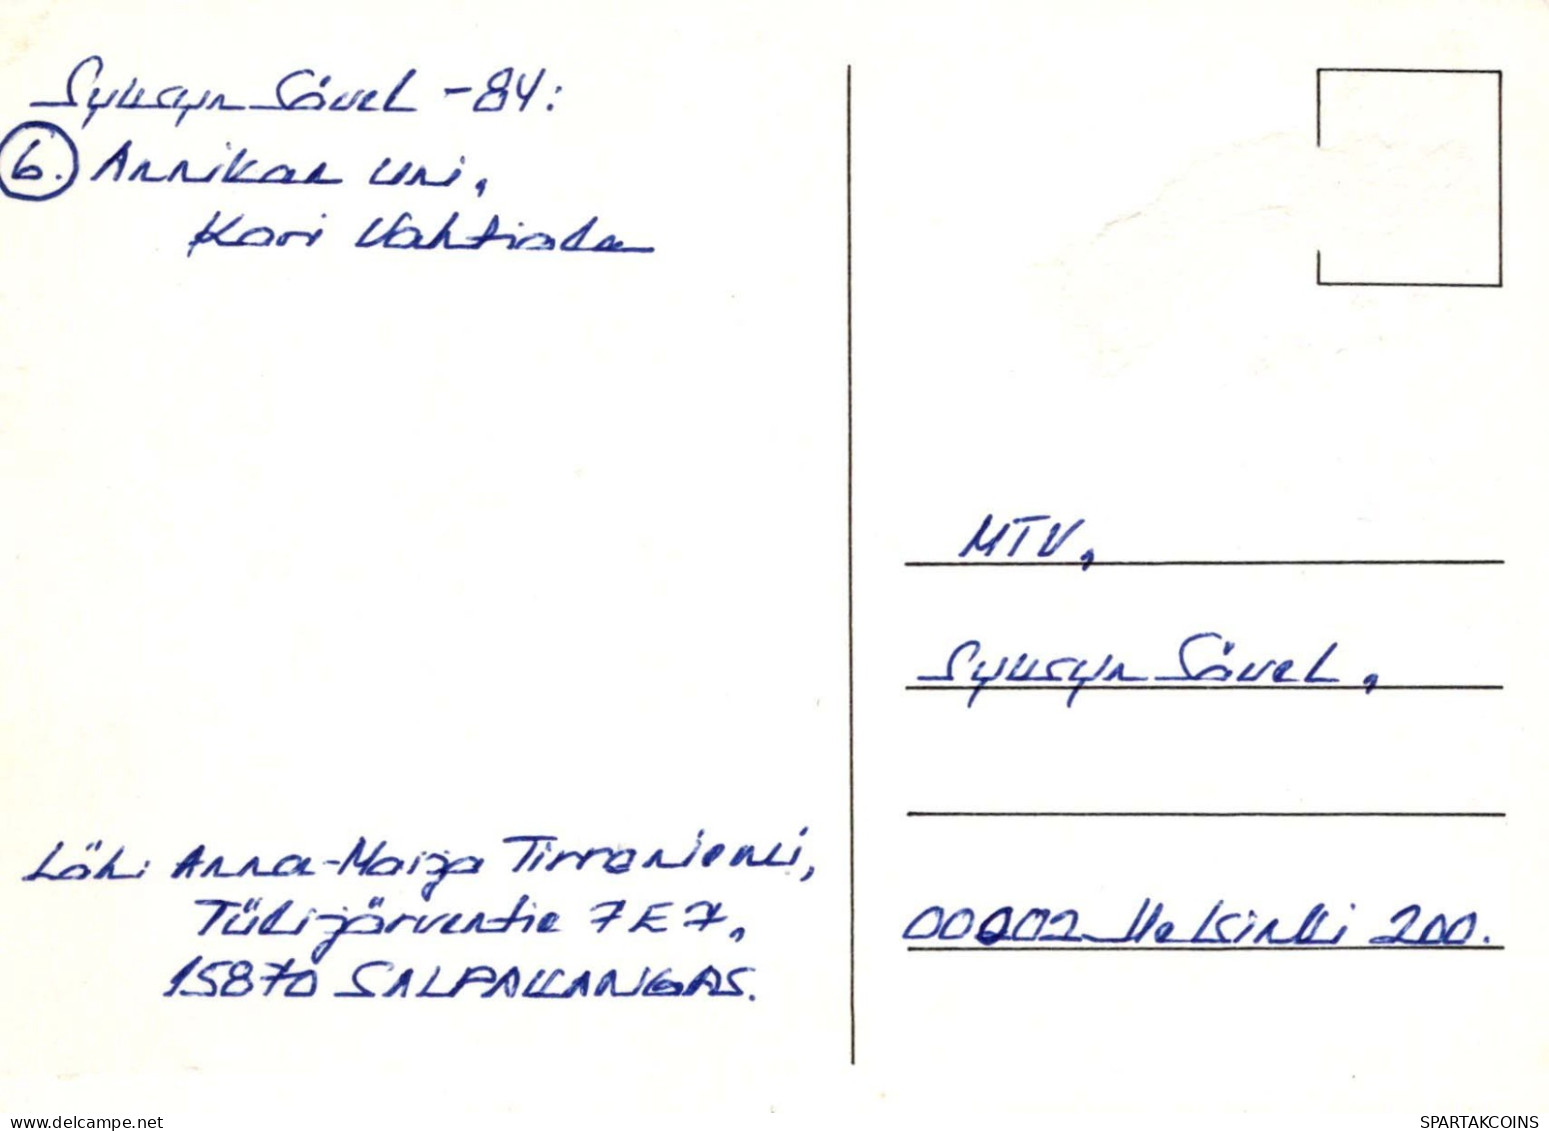 Syksyn Sävel -84:
6. Annikan uni,
Kari Vahtiala
Läh: Anna-Maija Tirraniemi,
Tiilijärventie 7 E 7,
15870 SALPAKANGAS.
MTV,
Syksyn Sävel,
00002 Helsinki 200.
www.delcampe.net
SPARTAKCOINS